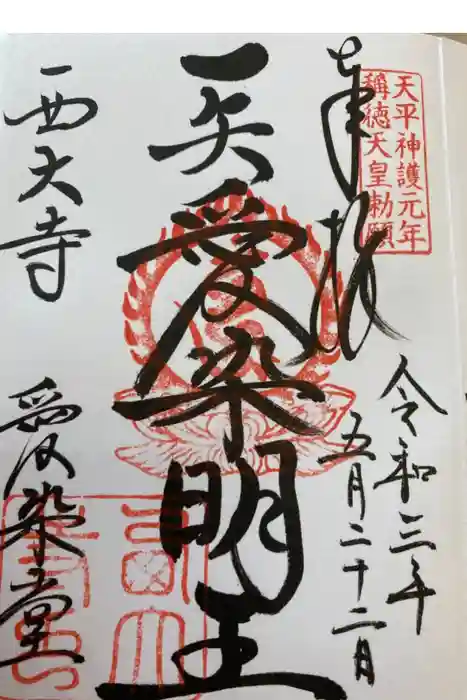 天平神護元年
稱徳天皇勅願
奉拝
令和三年
五月二十二日
一矢愛染明王
西大寺
愛染堂